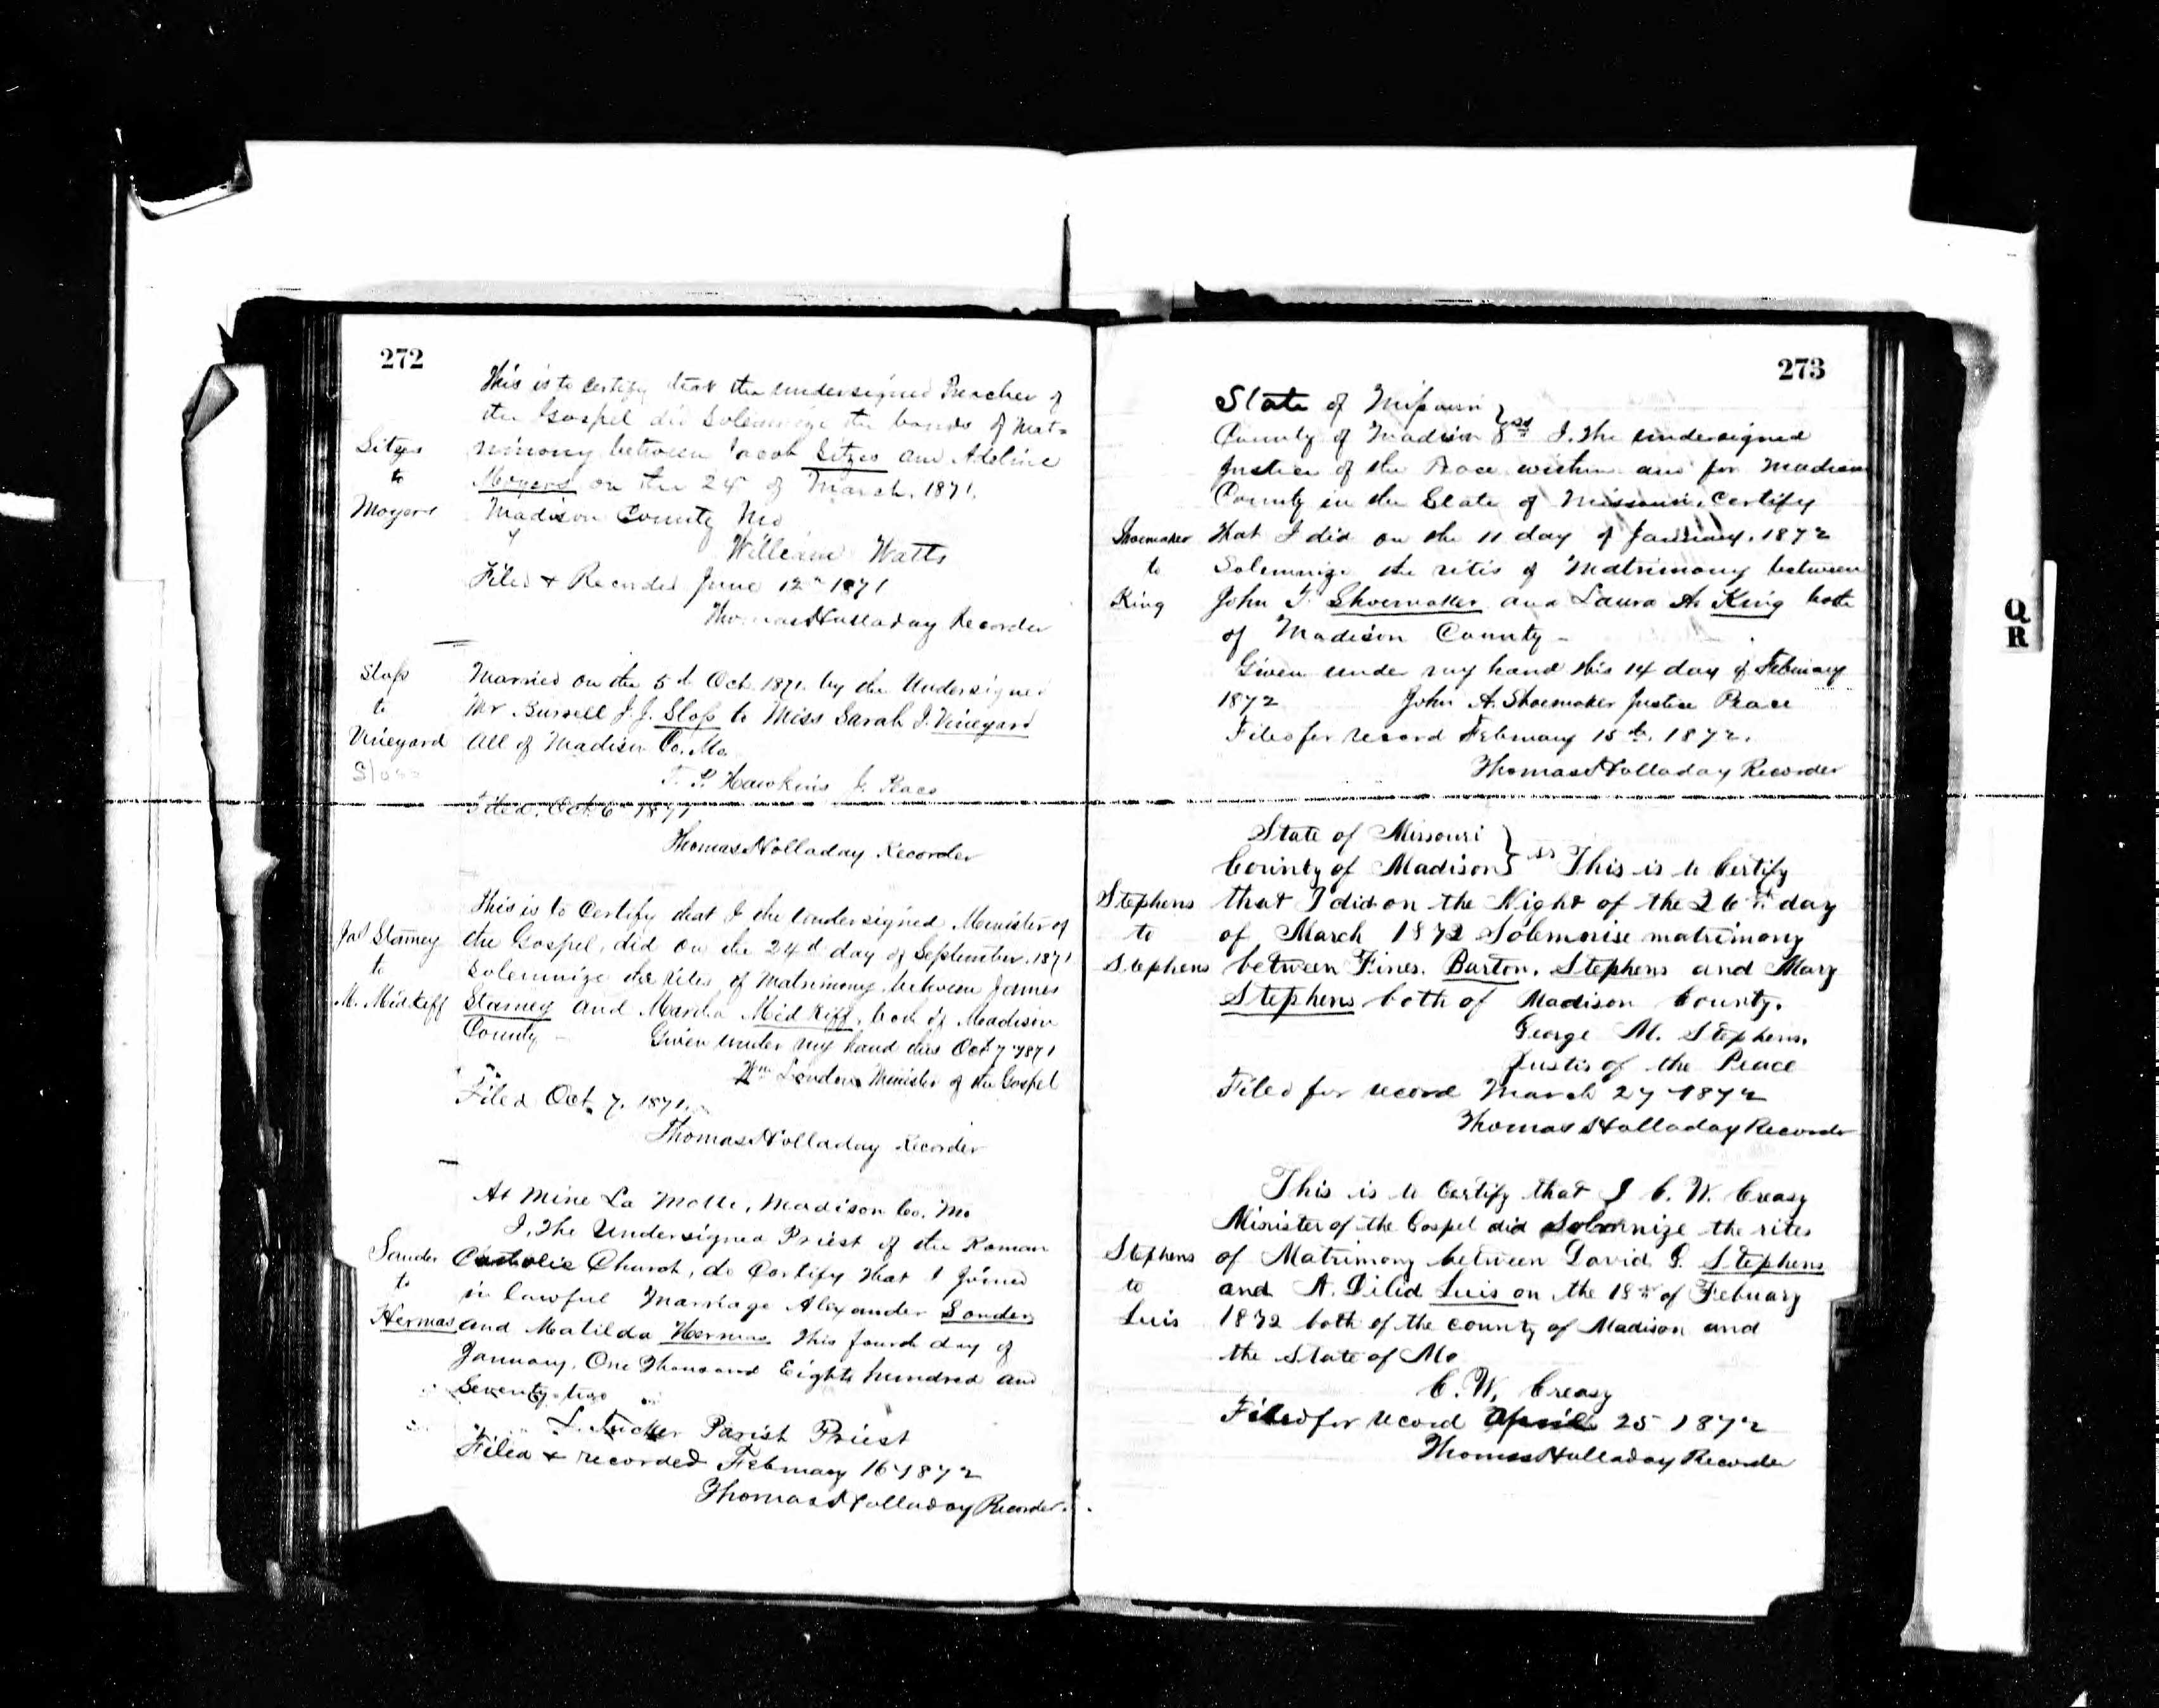 272
This is to Certify that the undersigned Preacher of
the Gospel did Solemnize the bonds of Mat=
Sitzes rimony between Jacob Sitzes and Adeline
to Moyers on the 24th of March, 1871.
Moyers Madison County Mo
William Watts
Filed & Recorded June 12th 1871
Thomas Holladay Recorder
Sloss Married on the 5th Oct. 1871 by the Undersigned
to Mr Burwell J. J. Sloss to Miss Sarah J. Vineyard
Vineyard All of Madison Co. Mo
Sloss
T. P. Hawkins J. Peace
Filed, Oct. 6th 1871
Thomas Holladay Recorder
This is to Certify that I the undersigned Minister of
Jas Stamey the Gospel, did on the 24th day of September, 1871
to Solemnize the rites of Matrimony between James
M. Midkiff Stamey and Martha Midkiff, both of Madison
County – Given under my hand this Oct 7th 1871
Wm London Minister of the Gospel
Filed Oct. 7. 1871.
Thomas Holladay Recorder
At Mine La Motte, Madison Co. Mo
I, the Undersigned Priest of the Roman
Sander Catholic Church, do Certify that I joined
to in lawful Marriage Alexander Sonder
Hermas and Matilda Hermas this fourth day of
January, One Thousand Eight hundred and
Seventy two
L. Tucker Parish Priest
Filed & recorded February 16th 1872
Thomas Holladay Recorder.
273
State of Missouri
County of Madison } ss I, the undersigned
Justice of the Peace within and for Madison
County in the State of Missouri, Certify
Shoemaker that I did on the 11 day of January, 1872
to Solemnize the rites of Matrimony between
King John T. Shoemaker and Laura A. King both
of Madison County –
Given under my hand this 14 day of February
1872 John A. Shoemaker Justice Peace
Filed for record February 15th. 1872.
Thomas Holladay Recorder
State of Missouri
County of Madison } ss This is to Certify
Stephens that I did on the Night of the 26th day
to of March 1872 Solemnise matrimony
Stephens between Fines. Burton. Stephens and Mary
Stephens both of Madison County.
George M. Stephens.
Justis of the Peace
Filed for record March 27th 1872
Thomas Holladay Recorder
This is to Certify that I C. W. Creasy
Minister of the Gospel did Solemnize the rites
Stephens of Matrimony between David G. Stephens
to and A. Dilid Luis on the 18th of Febuary
Luis 1872 both of the county of Madison and
the State of Mo
C. W. Creasy
Filed for record April 25 1872
Thomas Holladay Recorder
Q
R